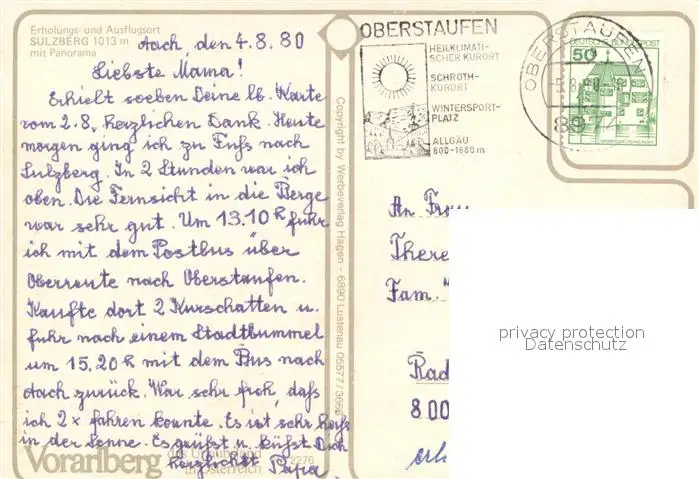 Erholungs- und Ausflugsort
SULZBERG 1013 m
mit Panorama
Aach, den 4.8.80
Liebste Mama!
Erhielt soeben Deine lb. Karte
vom 2.8, herzlichen Dank. Heute
morgen ging ich zu Fuß nach
Sulzberg. In 2 Stunden war ich
oben. Die Fernsicht in die Berge
war sehr gut. Um 13.10 h fuhr
ich mit dem Postbus über
Oberreute nach Oberstaufen.
Kaufte dort 2 Kurschatten u.
fuhr nach einem Stadtbummel
um 15.20 h mit dem Bus nach
Aach zurück. War sehr froh, daß
ich 2x fahren konnte. Es ist sehr heiß
in der Sonne. Es grüßt u. küßt Dich
herzlichst Papa
Vorarlberg
das Urlaubsland
in Österreich
2276
Copyright by Werbeverlag Hagen - 6890 Lustenau 05577/
OBERSTAUFEN
HEILKLIMATI-
SCHER KURORT
SCHROTH-
KURORT
WINTERSPORT-
PLATZ
ALLGÄU
800-1880 m
OBERSTAUFEN
DEUTSCHE BUNDESPOST
50
An Frau
There
Fam.
Rad
800
privacy protection
Datenschutz